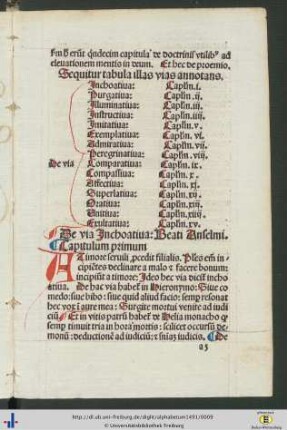 fm h̄ erūt qͥndecim capitula de doctrinis vtilibꝰ ad
eleuationem mentis in deum. Et hec de proemio.
Sequitur tabula illas vias annotans.
De via
Inchoatiua: Caplm̄.i.
Purgatiua: Caplm̄.ii.
Illuminatiua: Caplm̄.iii.
Instructiua: Caplm̄.iiii.
Imitatiua: Caplm̄.v.
Exemplatiua: Caplm̄.vi.
Admiratiua: Caplm̄.vii.
Peregrinatiua: Caplm̄.viii.
Comparatiua: Caplm̄.ix.
Compassiua: Caplm̄.x.
Affectiua: Caplm̄.xi.
Superlatiua: Caplm̄.xii.
Oratiua: Caplm̄.xiii.
Unitiua: Caplm̄.xiiii.
Exultatiua: Caplm̄.xv.
De via Inchoatiua: Beati Anselmi.
Capitulum primum
A timore seruili ꝓcedit filialis. Ps̄es em̄ in-
cipiētes declinare a malo ⁊ facere bonum:
incipiūt a timore: Ideo hec via dicit̄ incho
atiua. De hac via habet̄ in Hieronymo: Siue co
medo: siue bibo: siue quid aliud facio: semp resonat
hec vox ī aure mea: Surgite mortui venite ad iudi
ciū. Et in vitis patrū habet̄ de Helia monacho q̄
semp timuit tria in hora mortis: scilicet occursū de
monū: deductionē ad iudiciū: ⁊ suiaꝫ iudicis. De
a3
http://dl.ub.uni-freiburg.de/diglit/alphabetum1491/0009
© Universitätsbibliothek Freiburg